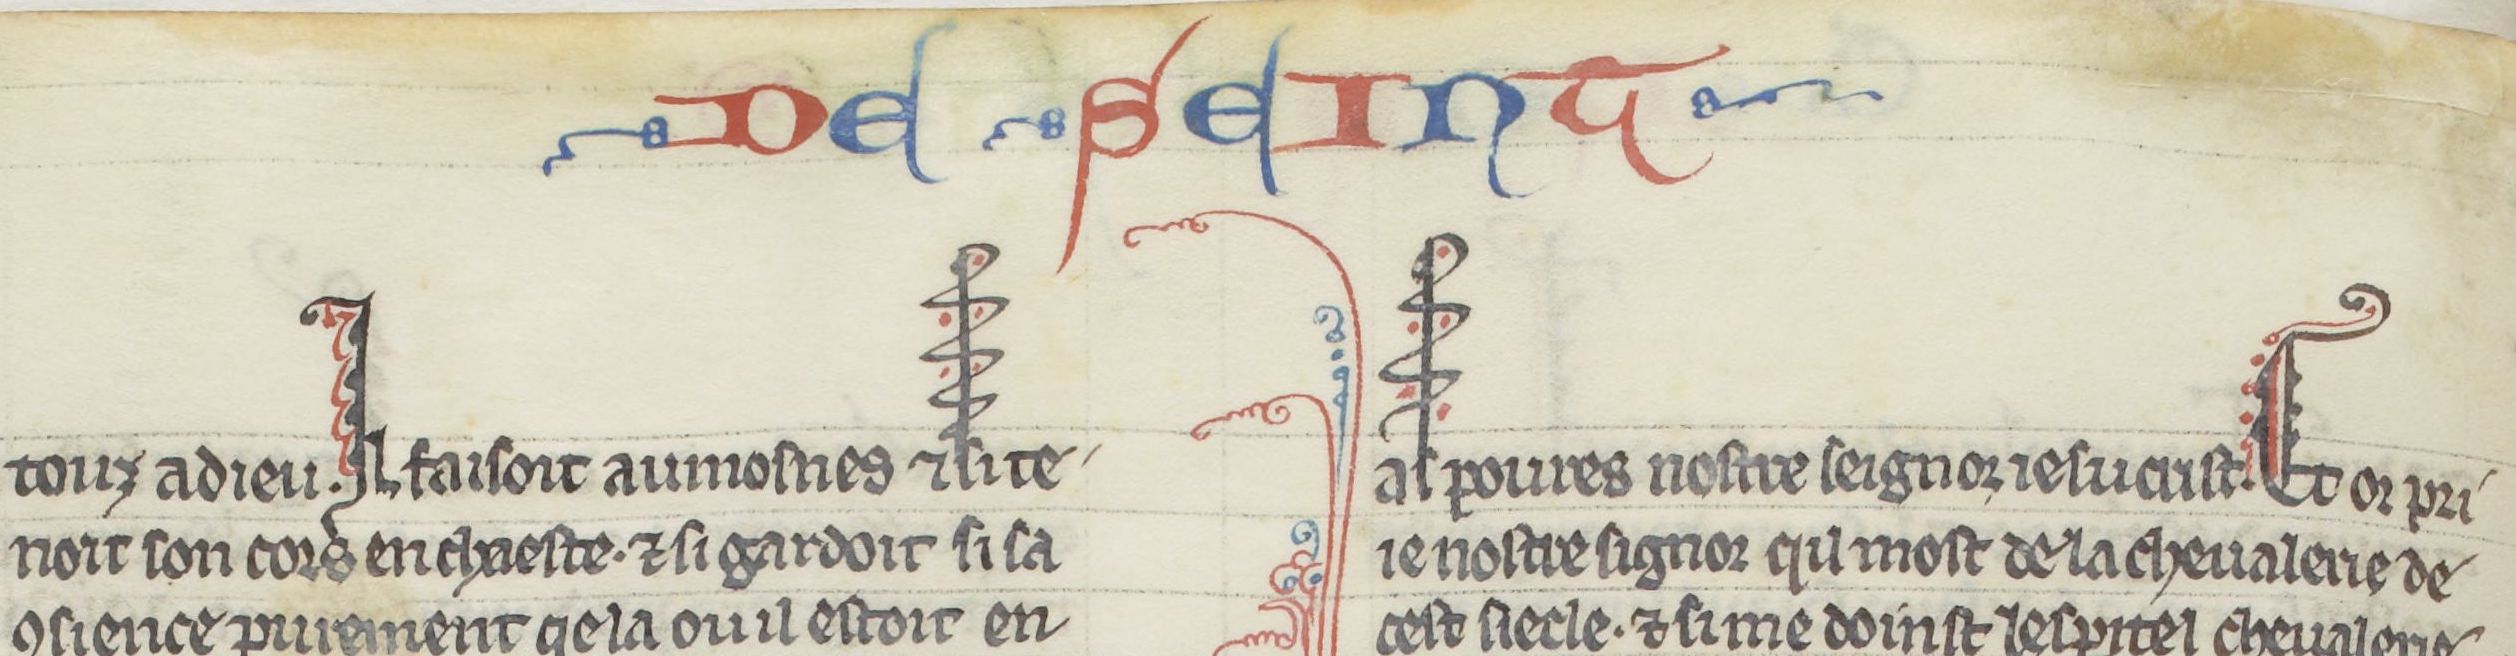 DE SEINT
touz a dieu. Il faisoit aumosnes ⁊ si te
noit son cors en chaeste. ⁊ si gardoit si sa
ꝯsience purement qe la ou il estoit en
as poures nostre seignor iesucrist. Et or pri
ie nostre signor qil most de la cheualerie de
cest siecle. ⁊ si me doinst lespitel cheualerie